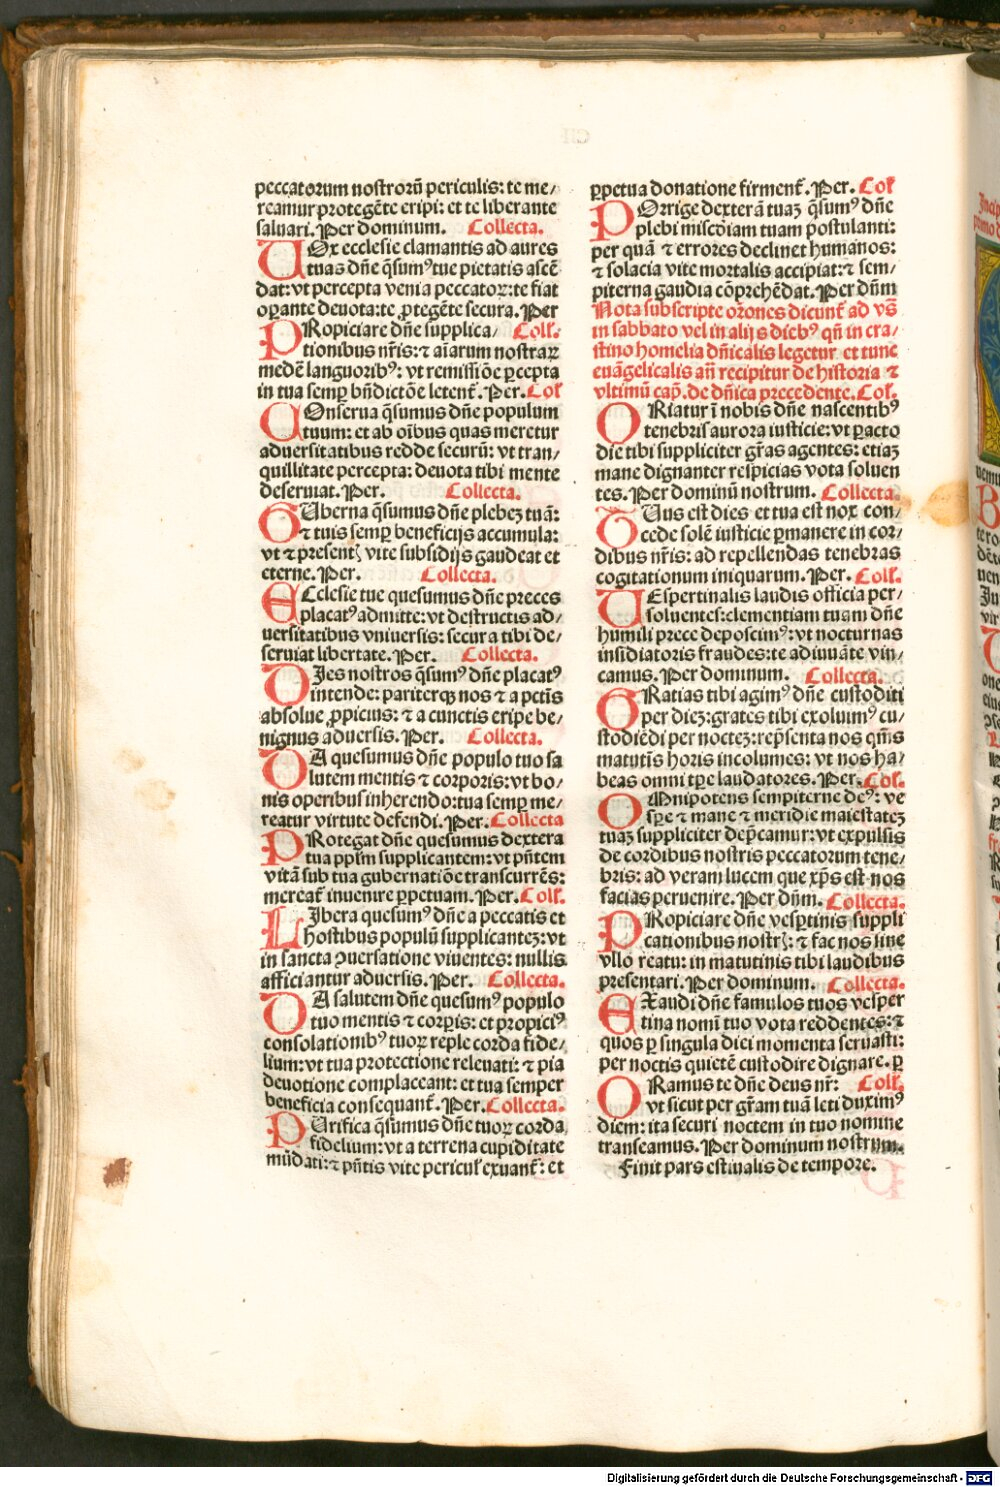 peccatorum nostrorū periculis: te me/
reamur protegēte eripi: et te liberante
saluari. Per dominum. Collecta.
VOx ecclesie clamantis ad aures
tuas dñe q̄sumꝰ tue pietatis ascē
dat: vt percepta venia peccatoꝝ: te fiat
oꝑante deuota: te ꝓtegēte secura. Per
PRopiciare dñe supplica/ Coll'.
tionibus nr̄is: ⁊ aīarum nostraꝝ
medē languoribꝰ: vt remissiōe ꝑcepta
in tua semꝑ bn̄dictōe letent̄. Per. Col'
COnserua q̄sumus dñe populum
tuum: et ab oībus quas meretur
aduersitatibus redde securū: vt tran/
quillitate percepta: deuota tibi mente
deseruiat. Per. Collecta.
GUberna q̄sumus dñe plebeꝫ tuā:
⁊ tuis semꝑ beneficijs accumula:
vt ⁊ presentꝭ vite subsidijs gaudeat et
eterne. Per. Collecta.
ECclesie tue quesumus dñe preces
placatꝰ admitte: vt destructis ad/
uersitatibus vniuersis: secura tibi de/
seruiat libertate. Per. Collecta.
DIes nostros q̄sumꝰ dñe placatꝰ
intende: pariterqꝫ nos ⁊ a pctīs
absolue ꝓpicius: ⁊ a cunctis eripe be/
nignus aduersis. Per. Collecta.
DA quesumus dñe populo tuo sa
lutem mentis ⁊ corporis: vt bo/
nis operibus inherendo: tua semꝑ me/
reatur virtute defendi. Per. Collecta
PRotegat dñe quesumus dextera
tua pplm̄ supplicantem: vt pn̄tem
vitā sub tua gubernatiōe transcurrēs:
mereat̄ inuenire ꝑpetuam. Per. Coll'.
LIbera quesumꝰ dñe a peccatis et
hostibus populū supplicanteꝫ: vt
in sancta ꝯuersatione viuentes: nullis
afficiantur aduersis. Per. Collecta.
DA salutem dñe quesumꝰ populo
tuo mentis ⁊ corꝑis: et propiciꝰ
consolationibꝰ tuoꝝ reple corda fide/
lium: vt tua protectione releuati: ⁊ pia
deuotione complaceant: et tua semper
beneficia consequant̄. Per. Collecta.
PUrifica q̄sumus dñe tuoꝝ corda
fidelium: vt a terrena cupiditate
mūdati: ⁊ pn̄tis vite pericul' exuant̄: et
ꝑpetua donatione firment̄. Per. Col'
POrrige dexterā tuaꝫ q̄sumꝰ dñe
plebi miscd̄iam tuam postulanti:
per quā ⁊ errores declinet humanos:
⁊ solacia vite mortalis accipiat: ⁊ sem/
piterna gaudia cōprehēdat. Per dn̄m
Nota subscripte or̄ones dicunt̄ ad vs̄
in sabbato vel in alijs diebꝰ qn̄ in cra/
stino homelia dn̄icalis legetur et tunc
euāgelicalis an̄ recipitur de historia ⁊
vltimū cap̄. de dn̄ica precedente. Col.
ORiatur ī nobis dñe nascentibꝰ
tenebris aurora iusticie: vt ꝑacto
die tibi suppliciter gr̄as agentes: etiaꝫ
mane dignanter respicias vota soluen
tes. Per dominū nostrum. Collecta.
TUus est dies et tua est nox con/
cede solē iusticie ꝑmanere in cor/
dibus nr̄is: ad repellendas tenebras
cogitationum iniquarum. Per. Coll'.
VEspertinalis laudis officia per/
soluentes: clementiam tuam dñe
humili prece deposcimꝰ: vt nocturnas
insidiatoris fraudes: te adiuuāte vin/
camus. Per dominum. Collecta.
GRatias tibi agimꝰ dñe custoditi
per dieꝫ: grates tibi exoluimꝰ cu/
stodiēdi per nocteꝫ: repn̄senta nos qūs
matutīs horis incolumes: vt nos ha/
beas omni tꝑe laudatores. Per. Col.
OMnipotens sempiterne deꝰ: ve
sꝑe ⁊ mane ⁊ meridie maiestateꝫ
tuaꝫ suppliciter dep̄camur: vt expulsis
de cordibus nostris peccatorum tene/
bris: ad veram lucem que xp̄s est nos
facias peruenire. Per dn̄m. Collecta.
PRopiciare dñe vesptinis suppli
cationibus nostrꝭ: ⁊ fac nos sine
vllo reatu: in matutinis tibi laudibus
presentari. Per dominum. Collecta.
EXaudi dñe famulos tuos vesper
tina nomī tuo vota reddentes: ⁊
quos ꝑ singula diei momenta seruasti:
per noctis quietē custodire dignare. ꝑ
ORamus te dñe deus nr̄: Coll'.
vt sicut per gr̄am tuā leti duximꝰ
diem: ita securi noctem in tuo nomine
transeamus. Per dominum nostrum.
Finit pars estiualis de tempore.
Digitalisierung gefördert durch die Deutsche Forschungsgemeinschaft - DFG